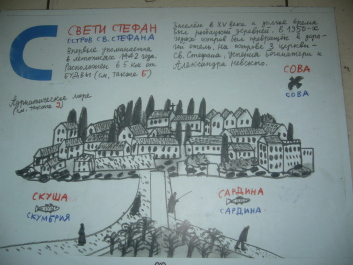 С
СВЕТИ СТЕФАН
ОСТРОВ СВ. СТЕФАНА
Впервые упоминается
в летописях 1442 года.
Расположен в 5 км от
БУДВЫ (см. также Б)
Заселён в XV веке и долгое время
был рыбацкой деревней. В 1950-х
годах остров был превращён в
отель. На острове 3 церкви -
Св. Стефана, Успения Богоматери и
Александра Невского.
СОВА
СОВА
Адриатическое море
(см. также
СКУША
СКУМБРИЯ
САРДИНА
САРДИНА